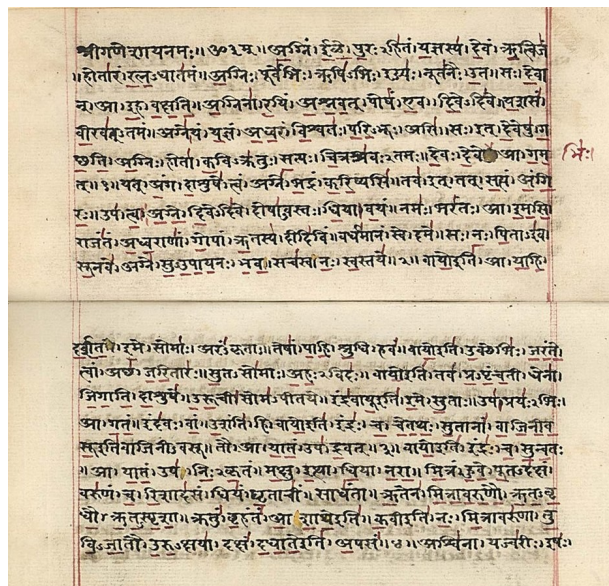 श्रीगणेशायनमः॥ॐ३म्॥अग्निं।ईळे।पुरःऽहितं।यज्ञस्य।देवं।ऋत्विजं
॥होतारं।रत्नऽधातमं॥अग्निः।पूर्वेभिः।ऋषिऽभिः।ईड्यः।नूतनैः।उत॥सः।देवा
न्।आ।इह।वक्षति॥अग्निना।रयिं।अश्नवत्।पोषं।एव।दिवेऽदिवे॥यशसं
वीरवत्ऽतमं॥अग्नेयं।यज्ञं।अध्वरं।विश्वतः।परिऽभूः।असि॥सः।इत्।देवेषु।ग
छति॥अग्निः।होता।कविऽक्रतुः।सत्यः।चित्रश्रवःऽतमः॥देवः।देवे।आ।गम भिः।
त्॥१॥यत्।अंग।दाशुषे।त्वं।अग्ने।भद्रं।करिष्यसि॥तव।इत्।तत्।सत्यं।अंगि
रः॥उप।त्वा।अग्ने।दिवेऽदिवे।दोषाऽवस्तः।धिया।वयं॥नमः।भरंतः।आ।इमसि॥
राजंतं।अध्वराणां।गोपां।ऋतस्य।दीदिविं॥वर्धमानं।स्वे।दमे॥सः।नः।पिताऽइव
सूनवे।अग्ने।सुऽउपायनः।भव॥सचस्व।नः।स्वस्तये॥२॥वायोइति।आ।याहि।
दर्शत।इमे।सोमाः।अरंऽकृताः॥तेषां।पाहि।श्रुधि।हवं॥वायोइति।उक्थेभिः।जरंते।
त्वां।अछ।जरितारः॥सुतऽसोमाः।अहःऽविदः॥वायोइति।तव।प्रऽपृंचती।धेना।
जिगाति।दाशुषे॥उरूची।सोमऽपीतये॥इंद्रवायूइति।इमे।सुताः॥उप।प्रयःऽभिः।
आ।गतं॥इंदवः।वां।उशंति।हि॥वायोइति।इंद्रः।च।चेतथः।सुतानां।वाजिनीव
सूइतिवाजिनीऽवसू॥तौ।आ।यातं।उप।द्रवत्॥३॥वायोइति।इंद्रः।च।सुन्वतः
॥आ।यातं।उप।निःऽकृतं॥मक्षु।इत्था।धिया।नरा॥मित्रं।हुवे।पूतऽदक्षं।
वरुणं।च।रिशादसं॥धियं।घृताचीं।साधंता॥ऋतेन।मित्रावरुणौ।ऋतऽवृ
धौ।ऋतऽस्पृशा॥क्रतुं।बृहंतं।आशाथेइति॥कवीइति।नः।मित्रावरुणा।तु
विऽजातौ।उरुऽक्षया॥दक्षं।दधातेइति।अपसं॥४॥अश्विना।यज्वरीः।इषः।